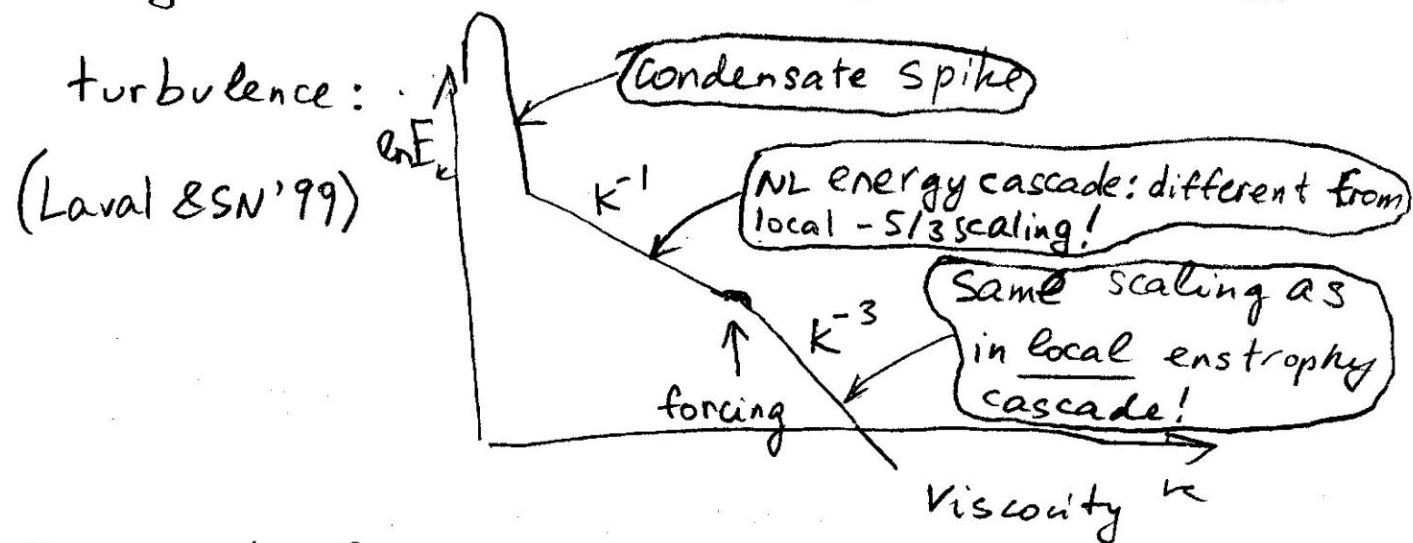 turbulence:
(Laval & SN'99)
ln E_k
Condensate Spike
k^-1
NL energy cascade: different from
local -5/3 scaling!
Same scaling as
in local enstrophy
cascade!
k^-3
forcing
Viscosity
k